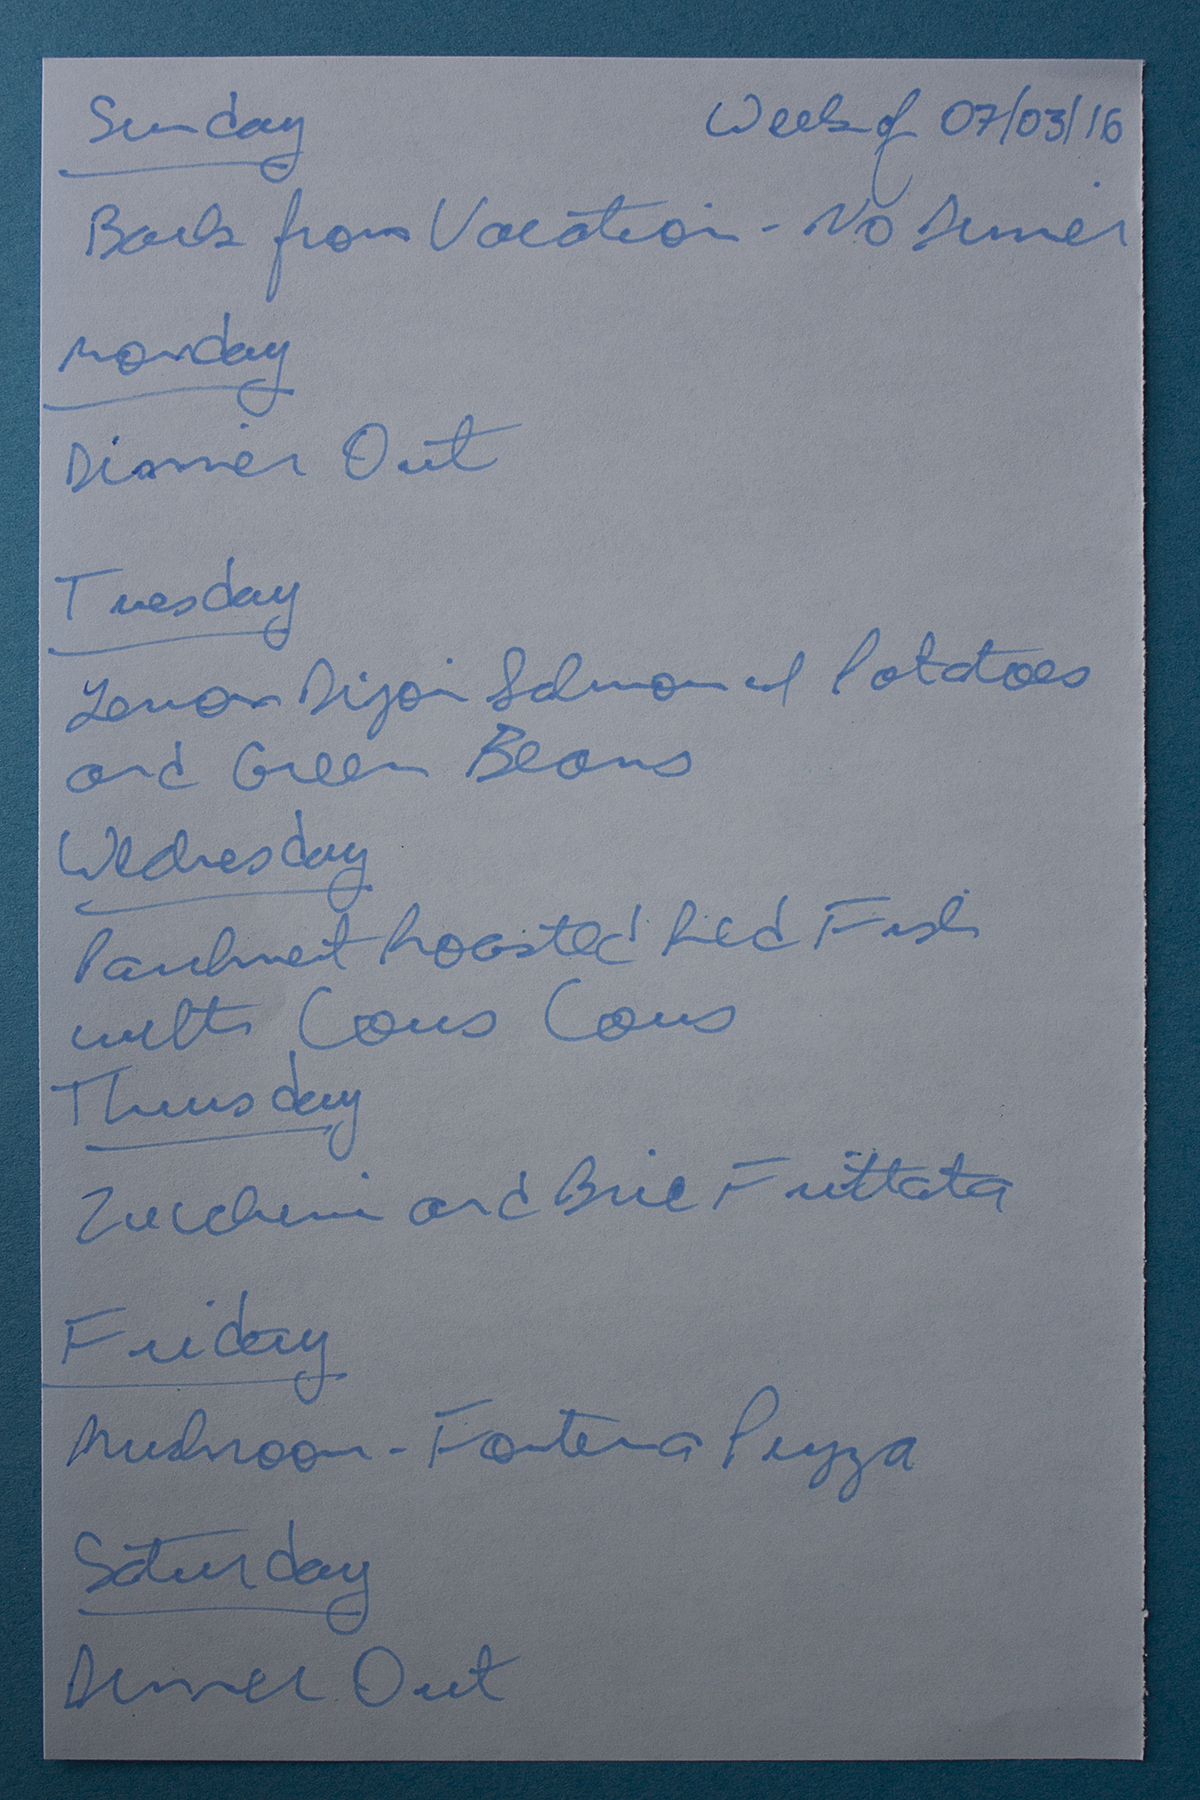 Sunday Week of 07/03/16
Back from Vacation - No Dinner
Monday
Dinner Out
Tuesday
Lemon Dijon Salmon w/ Potatoes
and Green Beans
Wednesday
Parchment Roasted Red Fish
with Cous Cous
Thursday
Zucchini and Brie Frittata
Friday
Mushroom - Fontena Pizza
Saturday
Dinner Out